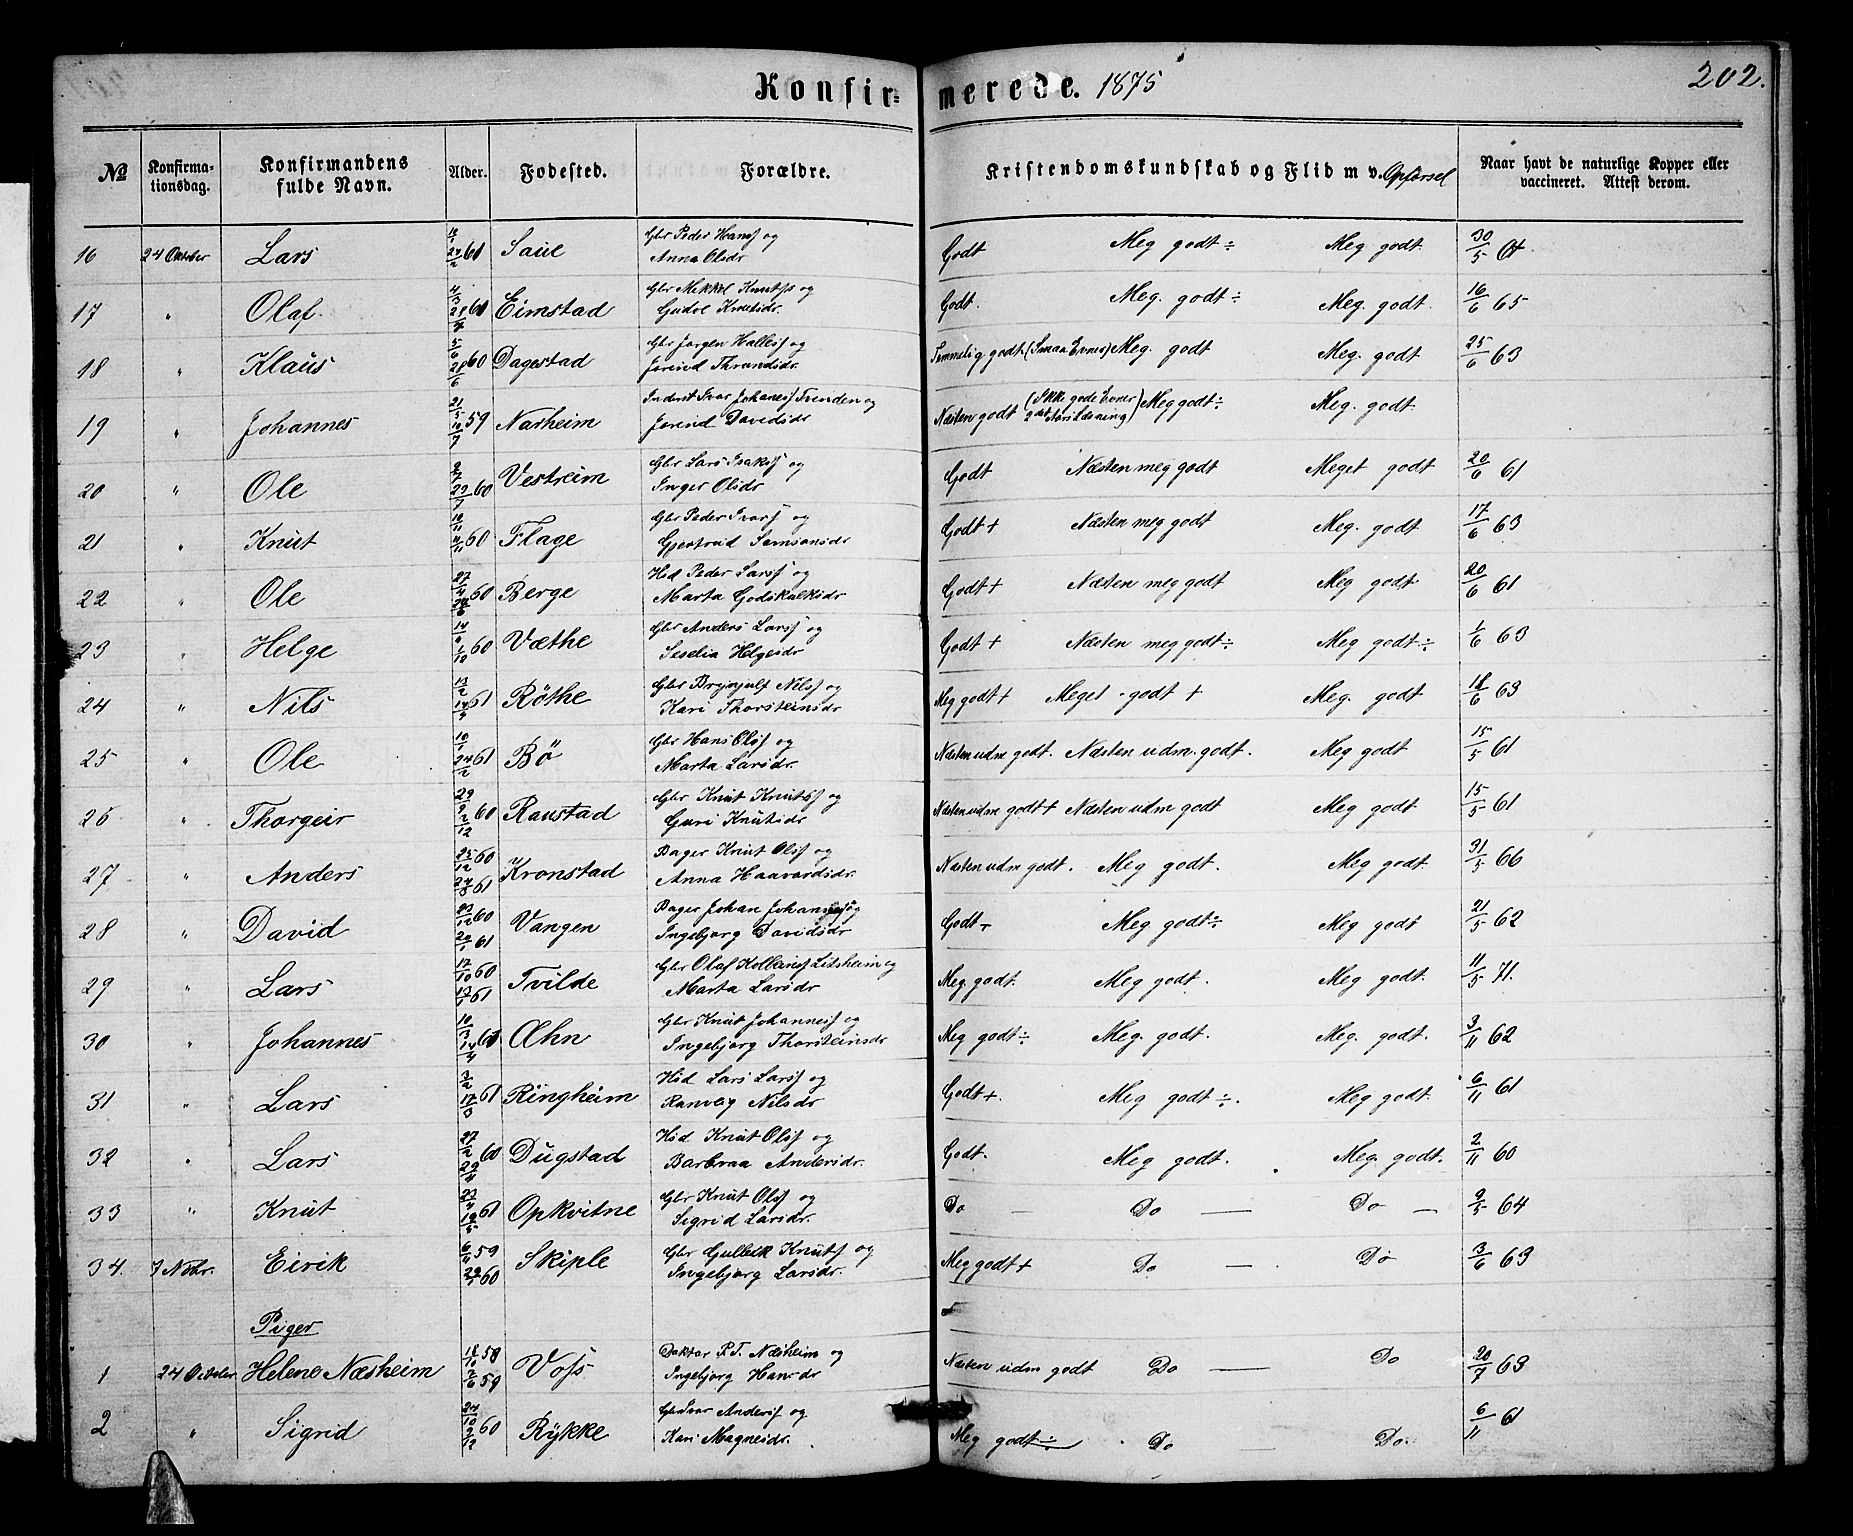 Konfir=
merede. 1875
202.
No Konfirma-tionsdag. Konfirmandens fulde Navn. Alder. Fødested. Forældre. Kristendomskundskab og Flid m v. Opførsel Naar havt de naturlige Kopper eller vaccineret. Attest derom.
16 24 Oktober Lars 24/2 60 Saue Gbr Peder Hanss og Anna Olsdr Godt Meg godt ÷ Meg. godt. 30/5
17 " Olaf 60 Eimstad Gbr Mikkel Knutss og Gudve Knutsdr. Godt. Meg. godt ÷ Meg. godt. 16/6 65
18 " Klaus 5/6 28/6 60 Dagestad Gbr Jørgen Halless og Jorind Thrundsdr. Temmelig godt (Smaa Evner) Meg. godt Meg. godt 25/6 63
19 " Johannes 21/5 10/7 59 Narheim Inderst Ivar Johaness Tvinden og Jorind Davidsdr Næsten godt (Ikke gode Evner 2det Aars Læsning) Meg godt ÷ Meg. godt
20 " Ole 22/7 60 Vestreim Gbr Lars Isakss og Inger Olsdr Godt Næsten meg godt Meget godt 20/6 61
21 " Knut 10/11 60 Flage Gbr Peder Ivars og Gjertrud Samsonsdr Godt + Næsten meg godt Meg. godt 17/6 63
22 " Ole 27/4 60 Berge Hsd Peder Larss og Marta Godskalksdr Godt + Næsten meg godt Meg godt 20/6 61
23 " Helge 1/10 60 Væthe Gbr Anders Larss og Seselia Helgesdr Godt + Næsten meg godt ÷ Meg godt ÷ 1/6 63
24 " Nils 13/2 14/4 61 Röthe Gbr Brynjulf Nilss og Kari Thorsteinsdr Meg godt + Meget godt + Meg. godt 18/6 63
25 " Ole 10/1 24/2 61 Bö Gbr Hans Olss og Marta Larsdr. Næsten udm godt. Næsten udm. godt. Meg godt 15/5 61
26 " Thorgeir 29/9 2/12 60 Raustad Gbr Knut Knutss og Guri Knutsdr Næsten udm godt + Næsten udm godt Meg godt 15/5 61
27 " Anders 25/12 60 24/3 61 Kronstad Bager Knut Olss og Anna Haavardsdr. Næsten udm godt. Meg godt. Meg godt. 31/5 66
28 " David 23/12 60 20/1 61 Vangen Bager Johan Johaness og Ingebjørg Davidsdr Godt Meg godt ÷ Meg godt 21/5 62
29 " Lars 17/10 60 13/1 61 Tvilde Gbr Olaf Kolbeinss Litsheim og Marta Larsdr Meg. godt. Meg godt. Meg godt. 11/5 71.
30 " Johannes 10/3 14/4 60 Æhn Gbr Knut Johanness og Ingebjørg Thorsteinsdr Meg godt ÷ Meg. godt. Meg. godt. 3/11 62
31 " Lars 3/2 17/3 61 Ringheim Hsd Lars Larss og Ranveig Nilsdr Godt +. Meg godt ÷. Meg godt. 6/11 61
32 " Lars 27/2 29/4 60 Dugstad Hsd Knut Olss og Barbraa Andersdr. Godt. Meg godt. Meg. godt. 2/11 60
33 " Knut 23/4 19/5 61 Opkvitne Gbr Knut Olss og Sigrid Larsdr. Do — Do — Do — 9/5 64
34. 7 Nobr. Eirik 6/11 59 29/1 60 Skiple Gbr Gulleik Knuts og Ingebjørg Larsdr. Meg godt + Do — Do 3/6 63
Piger
1 24 October Helene Næsheim 18/10 58 7/6 59 Voss Doktor P. T. Næsheim og Ingebjørg Hansdr Næsten udm godt Do — Do 20/7 63
2 " Sigrid 24/10 2/12 60 Rykke Gbr Ivar Anderss og Kari Magnesdr. Meg godt ÷ Do — Do. 6/11 61